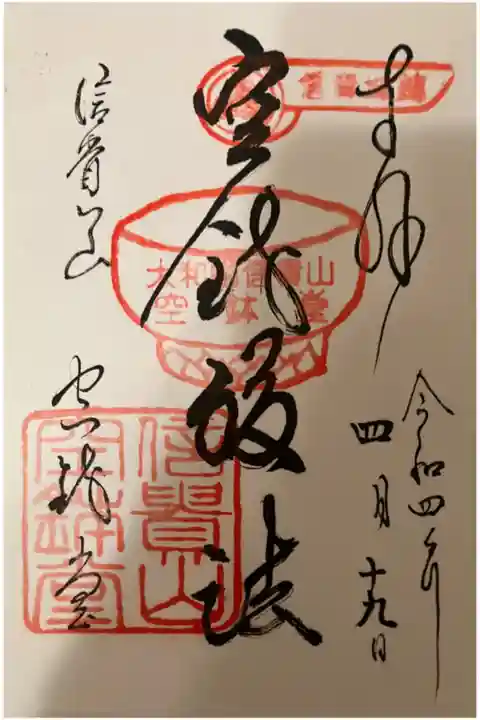 奉拝
令和四年
四月十九日
空鉢護法
信貴山
大和国信貴山
空鉢堂
信貴山
空鉢堂
空鉢堂